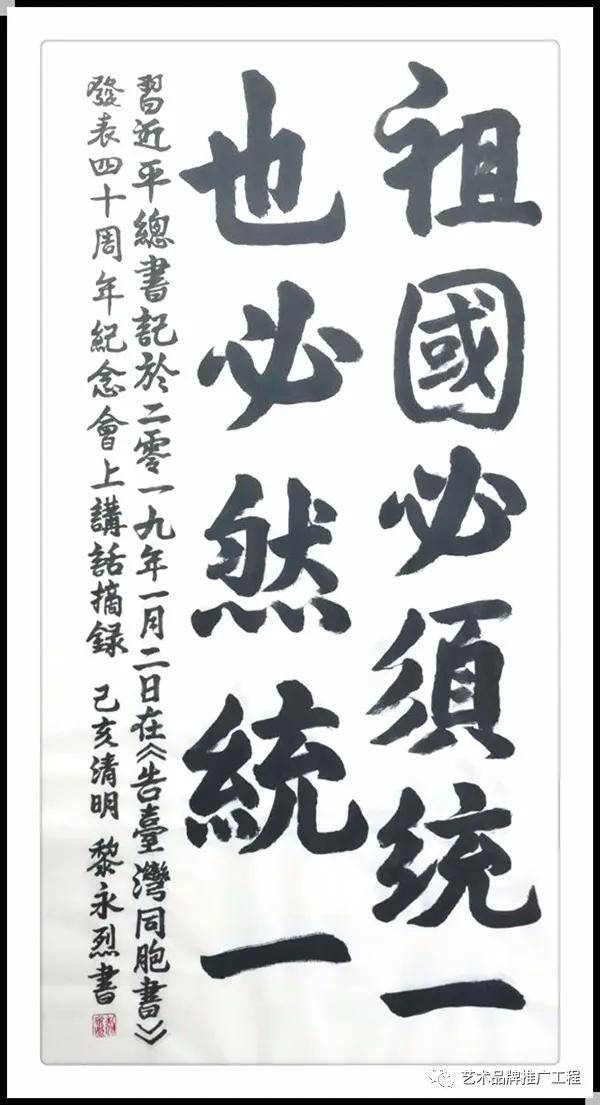 祖國必須统一
也必然統一
習近平總書記於二零一九年一月二日在《告臺灣同胞書》
發表四十周年紀念會上講話摘録 己亥清明 黎永烈書
艺术品牌推广工程